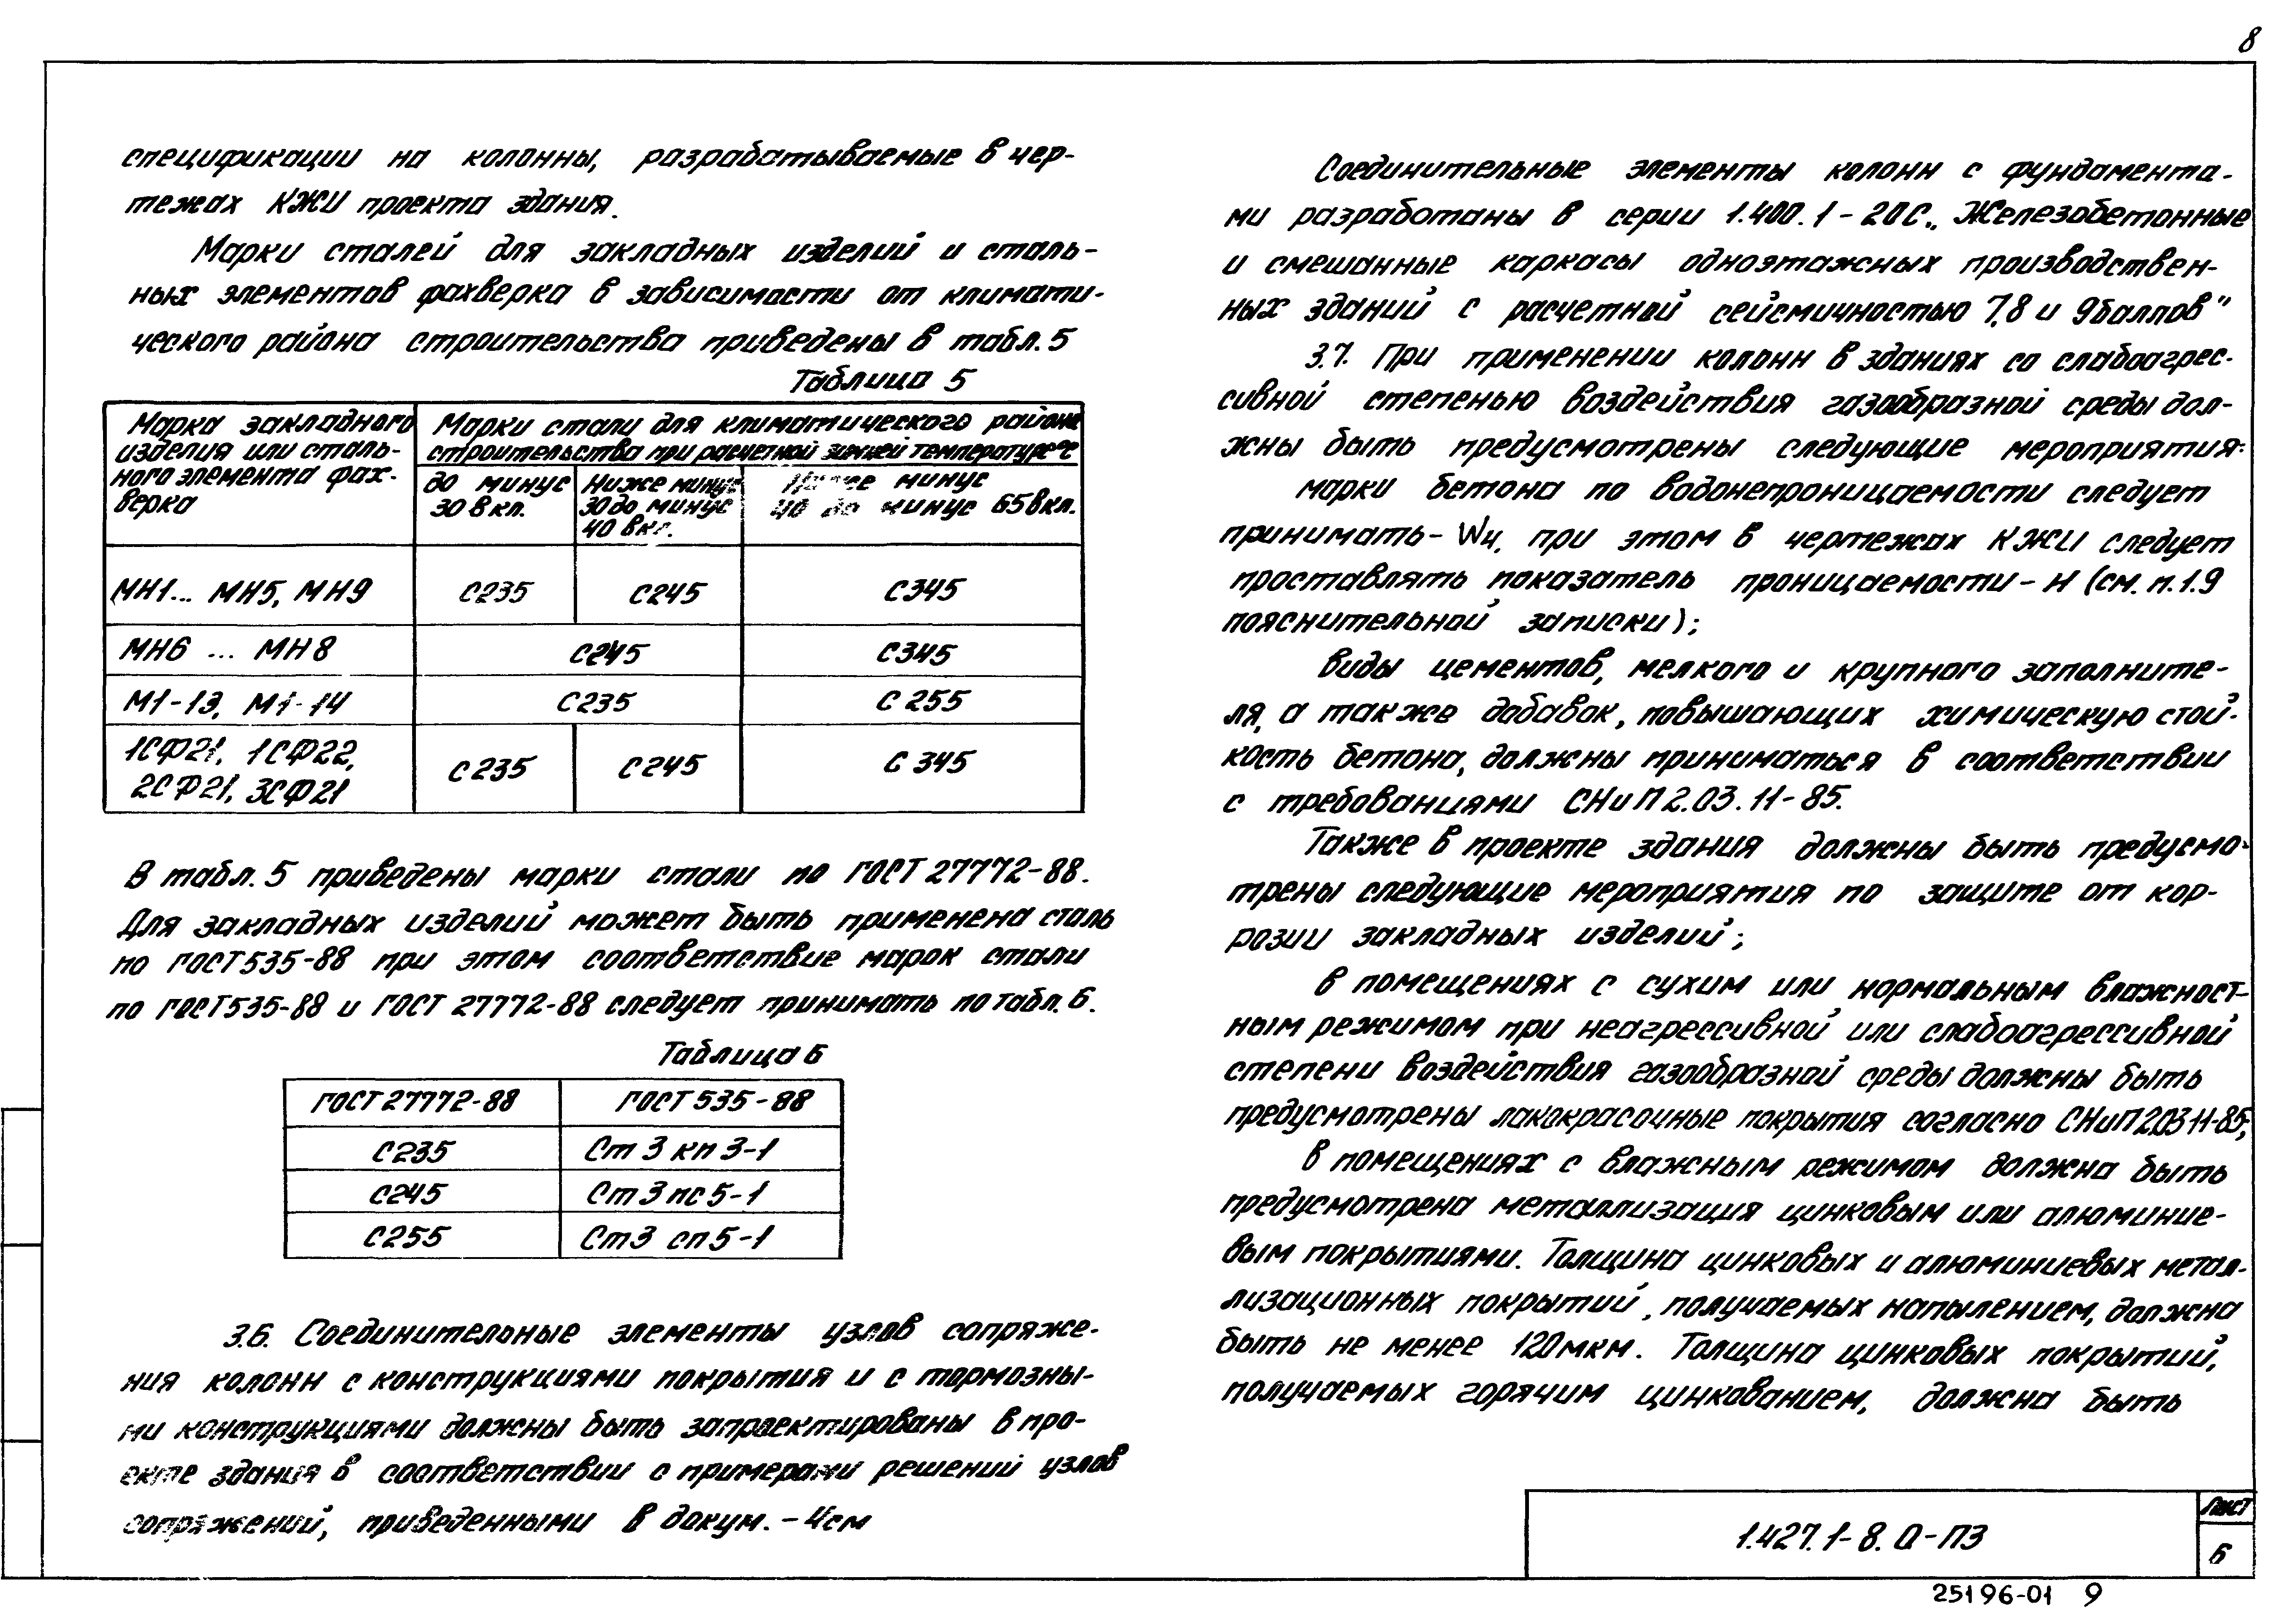 8
спецификации на колонны, разрабатываемые в чер-
тежах КЖИ проекта здания.
Марки сталей для закладных изделий и сталь-
ных элементов фахверка в зависимости от климати-
ческого района строительства приведены в табл. 5
Таблица 5
Марка закладного
изделия или сталь-
ного элемента фах-
верка
Марки стали для климатического района
строительства при расчетной зимней температуре °С
до минус
30 вкл.
Ниже минус
30 до минус
40 вкл.
Ниже минус
40 до минус 65 вкл.
МН1... МН5, МН9 С235 С245 С345
МН6 ... МН8 С245 С345
М1-13, М1-14 С235 С255
1СФ21, 1СФ22,
2СФ21, 3СФ21
С235 С245 С345
В табл. 5 приведены марки стали по ГОСТ 27772-88.
Для закладных изделий может быть применена сталь
по ГОСТ 535-88 при этом соответствие марок стали
по ГОСТ 535-88 и ГОСТ 27772-88 следует принимать по табл. 6.
Таблица 6
ГОСТ 27772-88 ГОСТ 535-88
С235 Ст 3 кп 3-1
С245 Ст 3 пс 5-1
С255 Ст3 сп 5-1
3.6. Соединительные элементы узлов сопряже-
ния колонн с конструкциями покрытия и с тормозны-
ми конструкциями должны быть запроектированы в про-
екте здания в соответствии с примерами решений узлов
сопряжений, приведенными в докум. -4см
Соединительные элементы колонн с фундамента-
ми разработаны в серии 1.400.1-20С „Железобетонные
и смешанные каркасы одноэтажных производствен-
ных зданий с расчетной сейсмичностью 7,8 и 9 баллов"
3.7. При применении колонн в зданиях со слабоагрес-
сивной степенью воздействия газообразной среды дол-
жны быть предусмотрены следующие мероприятия:
марки бетона по водонепроницаемости следует
принимать - W4, при этом в чертежах КЖИ следует
проставлять показатель проницаемости - Н (см. п. 1.9
пояснительной записки);
виды цементов, мелкого и крупного заполните-
ля, а также добавок, повышающих химическую стой-
кость бетона, должны приниматься в соответствии
с требованиями СНиП 2.03.11-85.
Также в проекте здания должны быть предусмо-
трены следующие мероприятия по защите от кор-
розии закладных изделий;
в помещениях с сухим или нормальным влажност-
ным режимом при неагрессивной или слабоагрессивной
степени воздействия газообразной среды должны быть
предусмотрены лакокрасочные покрытия согласно СНиП 2.03.11-85;
в помещениях с влажным режимом должна быть
предусмотрена металлизация цинковым или алюминие-
вым покрытиями. Толщина цинковых и алюминиевых метал-
лизационных покрытий, получаемых напылением, должна
быть не менее 120 мкм. Толщина цинковых покрытий,
получаемых горячим цинкованием, должна быть
1.427.1-8.0-ПЗ
Лист
6
25196-01 9